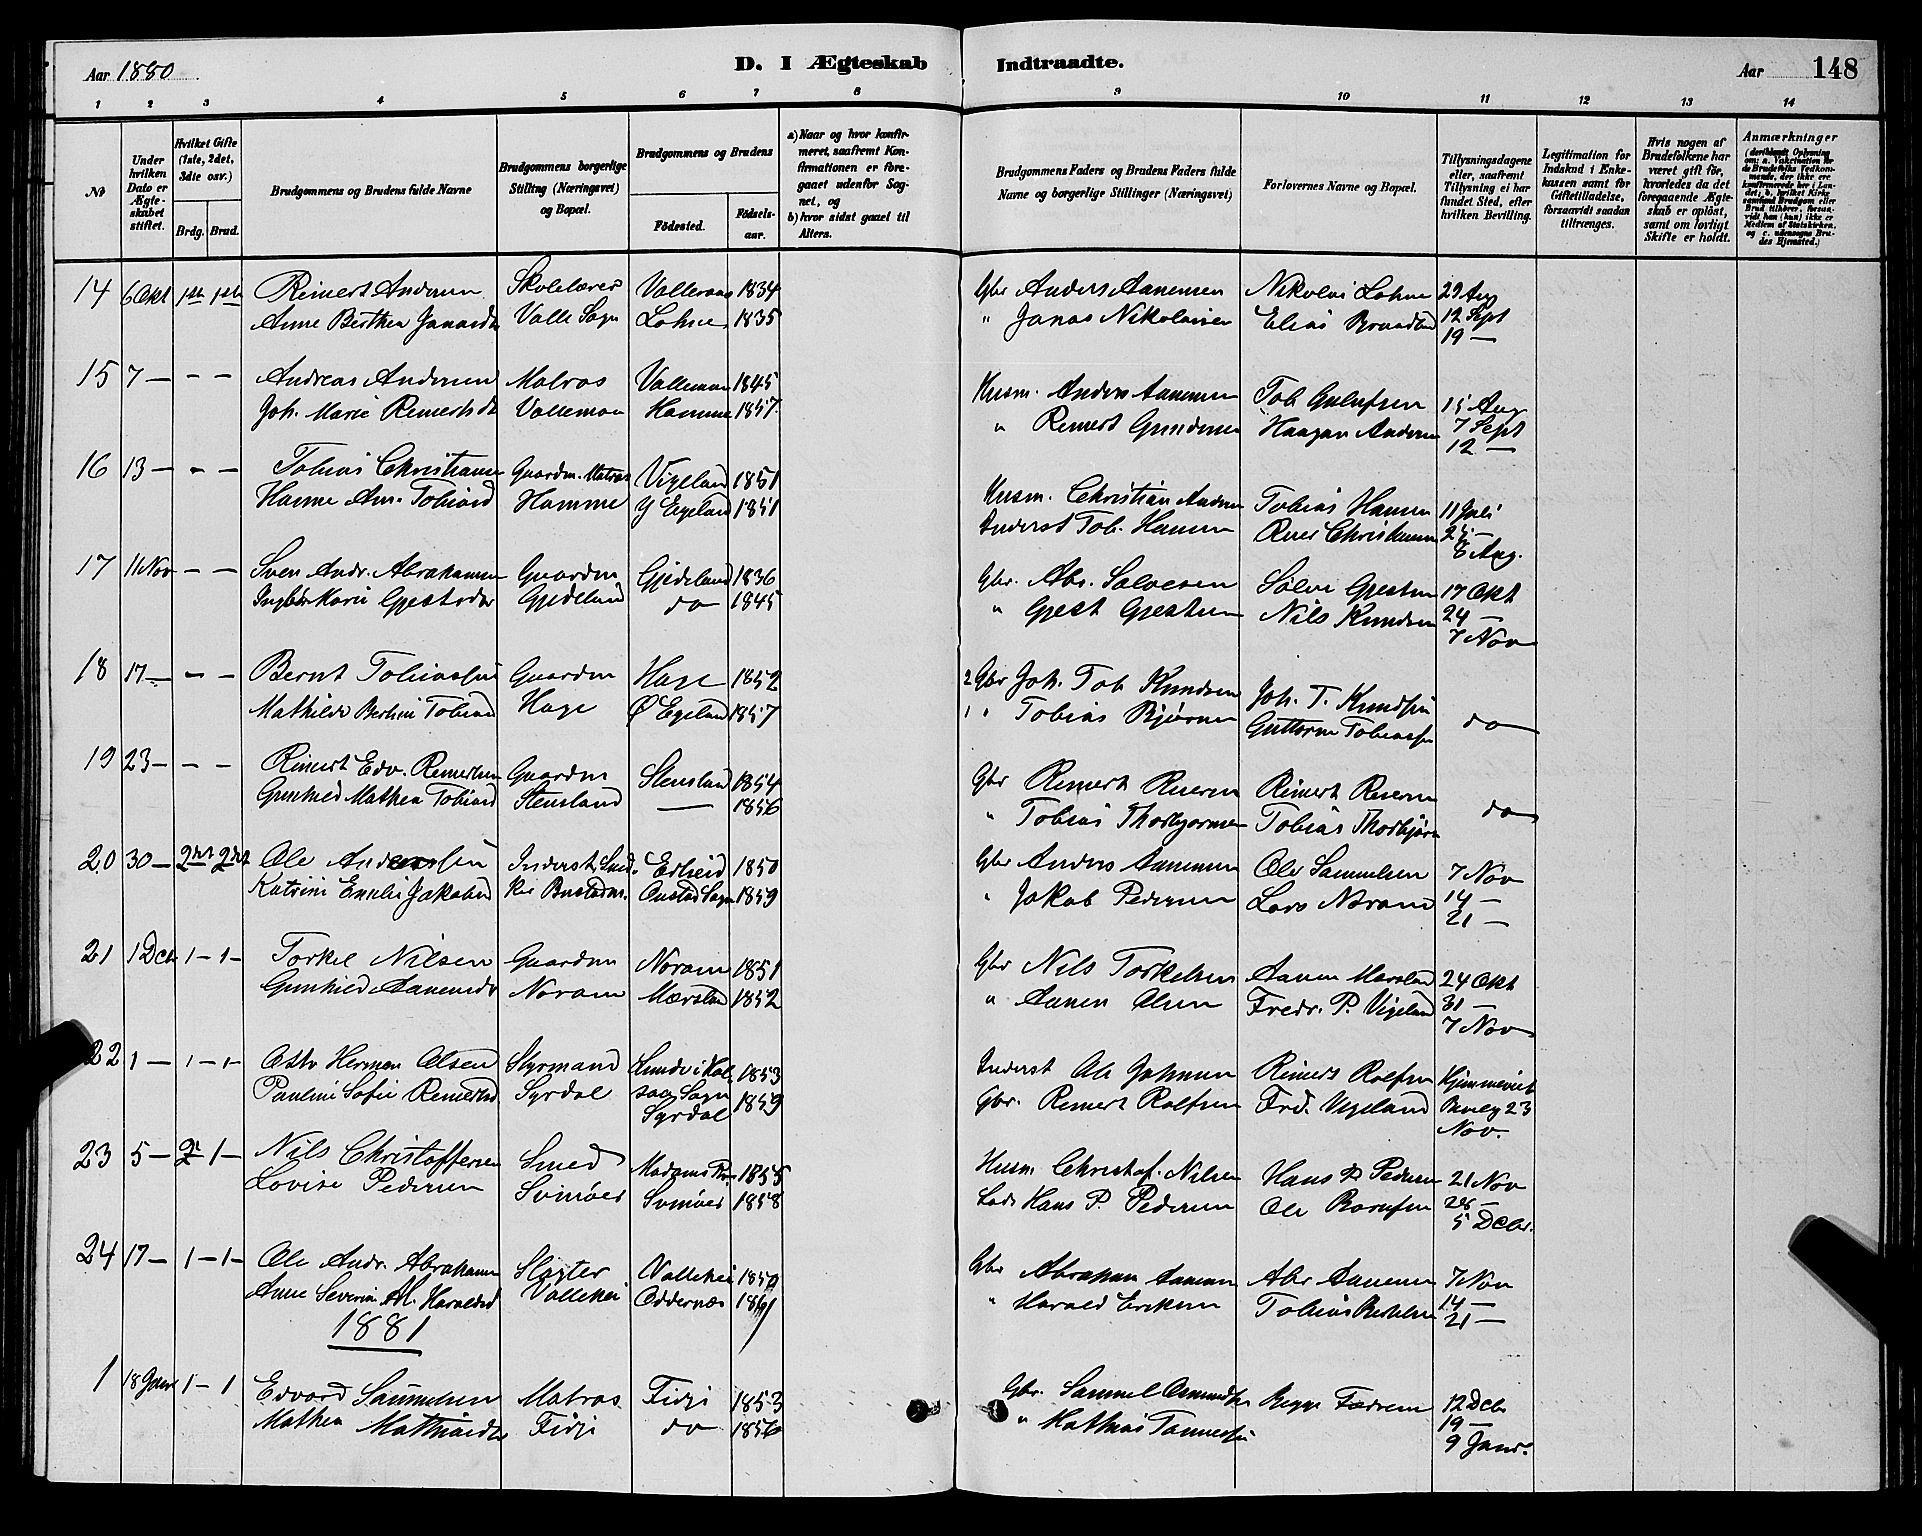 Aar 1880
D. I Ægteskab Indtraadte.
Aar 148
1 2 3 4 5 6 7 8 9 10 11 12 13 14
No
Under hvilken Dato er Ægteskabet stiftet.
Hvilket Gifte (1ste, 2det, 3die osv.)
Brdg. Brud.
Brudgommens og Brudens fulde Navne
Brudgommens borgerlige Stilling (Næringsvei) og Bopæl.
Brudgommens og Brudens
Fødested.
Fødselsaar.
a) Naar og hvor konfirmeret, saafremt Konfirmationen er foregaaet udenfor Sognet, og
b) hvor sidst gaaet til Alters.
Brudgommens Faders og Brudens Faders fulde Navne og borgerlige Stillinger (Næringsvei)
Forlovernes Navne og Bopæl.
Tillysningsdagene eller, saafremt Tillysning ei har fundet Sted, efter hvilken Bevilling.
Legitimation for Indskud i Enkekassen samt for Giftetilladelse, forsaavidt saadan tiltrænges.
Hvis nogen af Brudefolkene har været gift før, hvorledes da det foregaaende Ægteskab er opløst, samt om lovligt Skifte er holdt.
Anmærkninger
14 6 Okt 1ste 1ste Reinert Andersen Skolelærer 1834 Gbr Anders Aanensen Nikolai Lohne 29 Aug
Anne Berthea Jonasdtr Valle Sogn Lohne 1835 " Jonas Nikolaisen Elias 12 Sept
19 —
15 7 — - - Andreas Andersen Matros Vallemoen 1845 Husm. Anders Aanensen Tob Gulufsen 15 Aug
Joh. Marie Reinertsdt Vallemoen Homme 1857 " Reinert Gundersen Haagan Andersen 7 Sept
12 —
16 13 — - - Tobias Christiansen Gaardm. Matros Vigeland 1851 Husm. Christian Andersen Tobias Hansen 11 Juli
Hanne Am. Tobiasd Homme Y Egeland 1851 Inderst Tob. Hansen Christiansen 25 —
8 Aug.
17 11 Nov - - Sven Andr. Abrahamsen Gaardm Gjedeland 1836 Gbr. Abr. Salvesen Sølve Gjestsen 17 Okt
Ingbor Marie Gjestsdtr Gjedeland do 1845 " Gjest Gjestsen Nils Knudsen 24 —
7 Nov
18 17 — - - Bernt Tobiassen Gaardm Hage 1852 2 Gbr Joh. Tob Knudsen Joh. T. Knudsen
Mathilde Bertine Tobiasd Hage Ø Egeland 1857 1 " Tobias Bjørnsen Guttorm Tobiassen do
19 23 — - - Reinert Edv. Reinertsen Gaardm Stensland 1854 Gbr Reinert Reiersen Reinert Reiersen
Gunhild Mathea Tobiasd Stensland — 1856 " Tobias Thorbjornsen Tobias Thorbjørn do
20 30 — 2det 2det Ole Anderssen Inderst, Smed Erlheid 1850 Gbr Anders Aanensen Ole Samuelsen 7 Nov
Katrine Emilie Jakobsd Sogn 1859 " Jakob Pedersen Lars 14 —
21 —
21 1 Dcb 1 — 1 — Torkel Nilsen Gaardm Noraim 1851 Gbr Nils Torkelsen Aanen Mærsland 24 Okt
Gunhild Aanensdtr Noraim Mærsland 1852 " Aanen Olsen Fredr. P. Vigeland 31 —
7 Nov
22 1 — 1 — 1 — Herman Olsen Styrmand Lunde i Halsaa Sogn 1853 Inderst Ole Johnsen Reinert Rolfsen
Pauline Sofie Reinertsd Syrdal Syrdal 1859 Gbr. Reinert Rolfsen Frd. Vigeland 23
Nov.
23 5 — 2 — 1 — Nils Christoffersen Smed 1855 Husm Christof. Nilsen Hans P Pedersen 21 Nov
Lovise Pedersen Svinøer Svinøer 1858 Lods Hans P. Pedersen Ole 28 —
5 Dcbr.
24 17 — 1 — 1 — Ole Andr. Abrahamsen Slagter Vallehei 1850 Gbr Abraham Aanensen Abr Aanensen 7 Nov
Anne Severine M. Haraldsd Vallehei Oddernæs 1861 " Harald Eriksen Tobias 14 —
21 —
1881
1 18 Janr 1 — 1 Edvard Samuelsen Matros Fidje 1853 Gbr. Samuel Osmundsen 12 Dcb
Mathea Mathiasdtr Fidje do 1856 " Mathias Tønnesen 19 —
9 Janr.